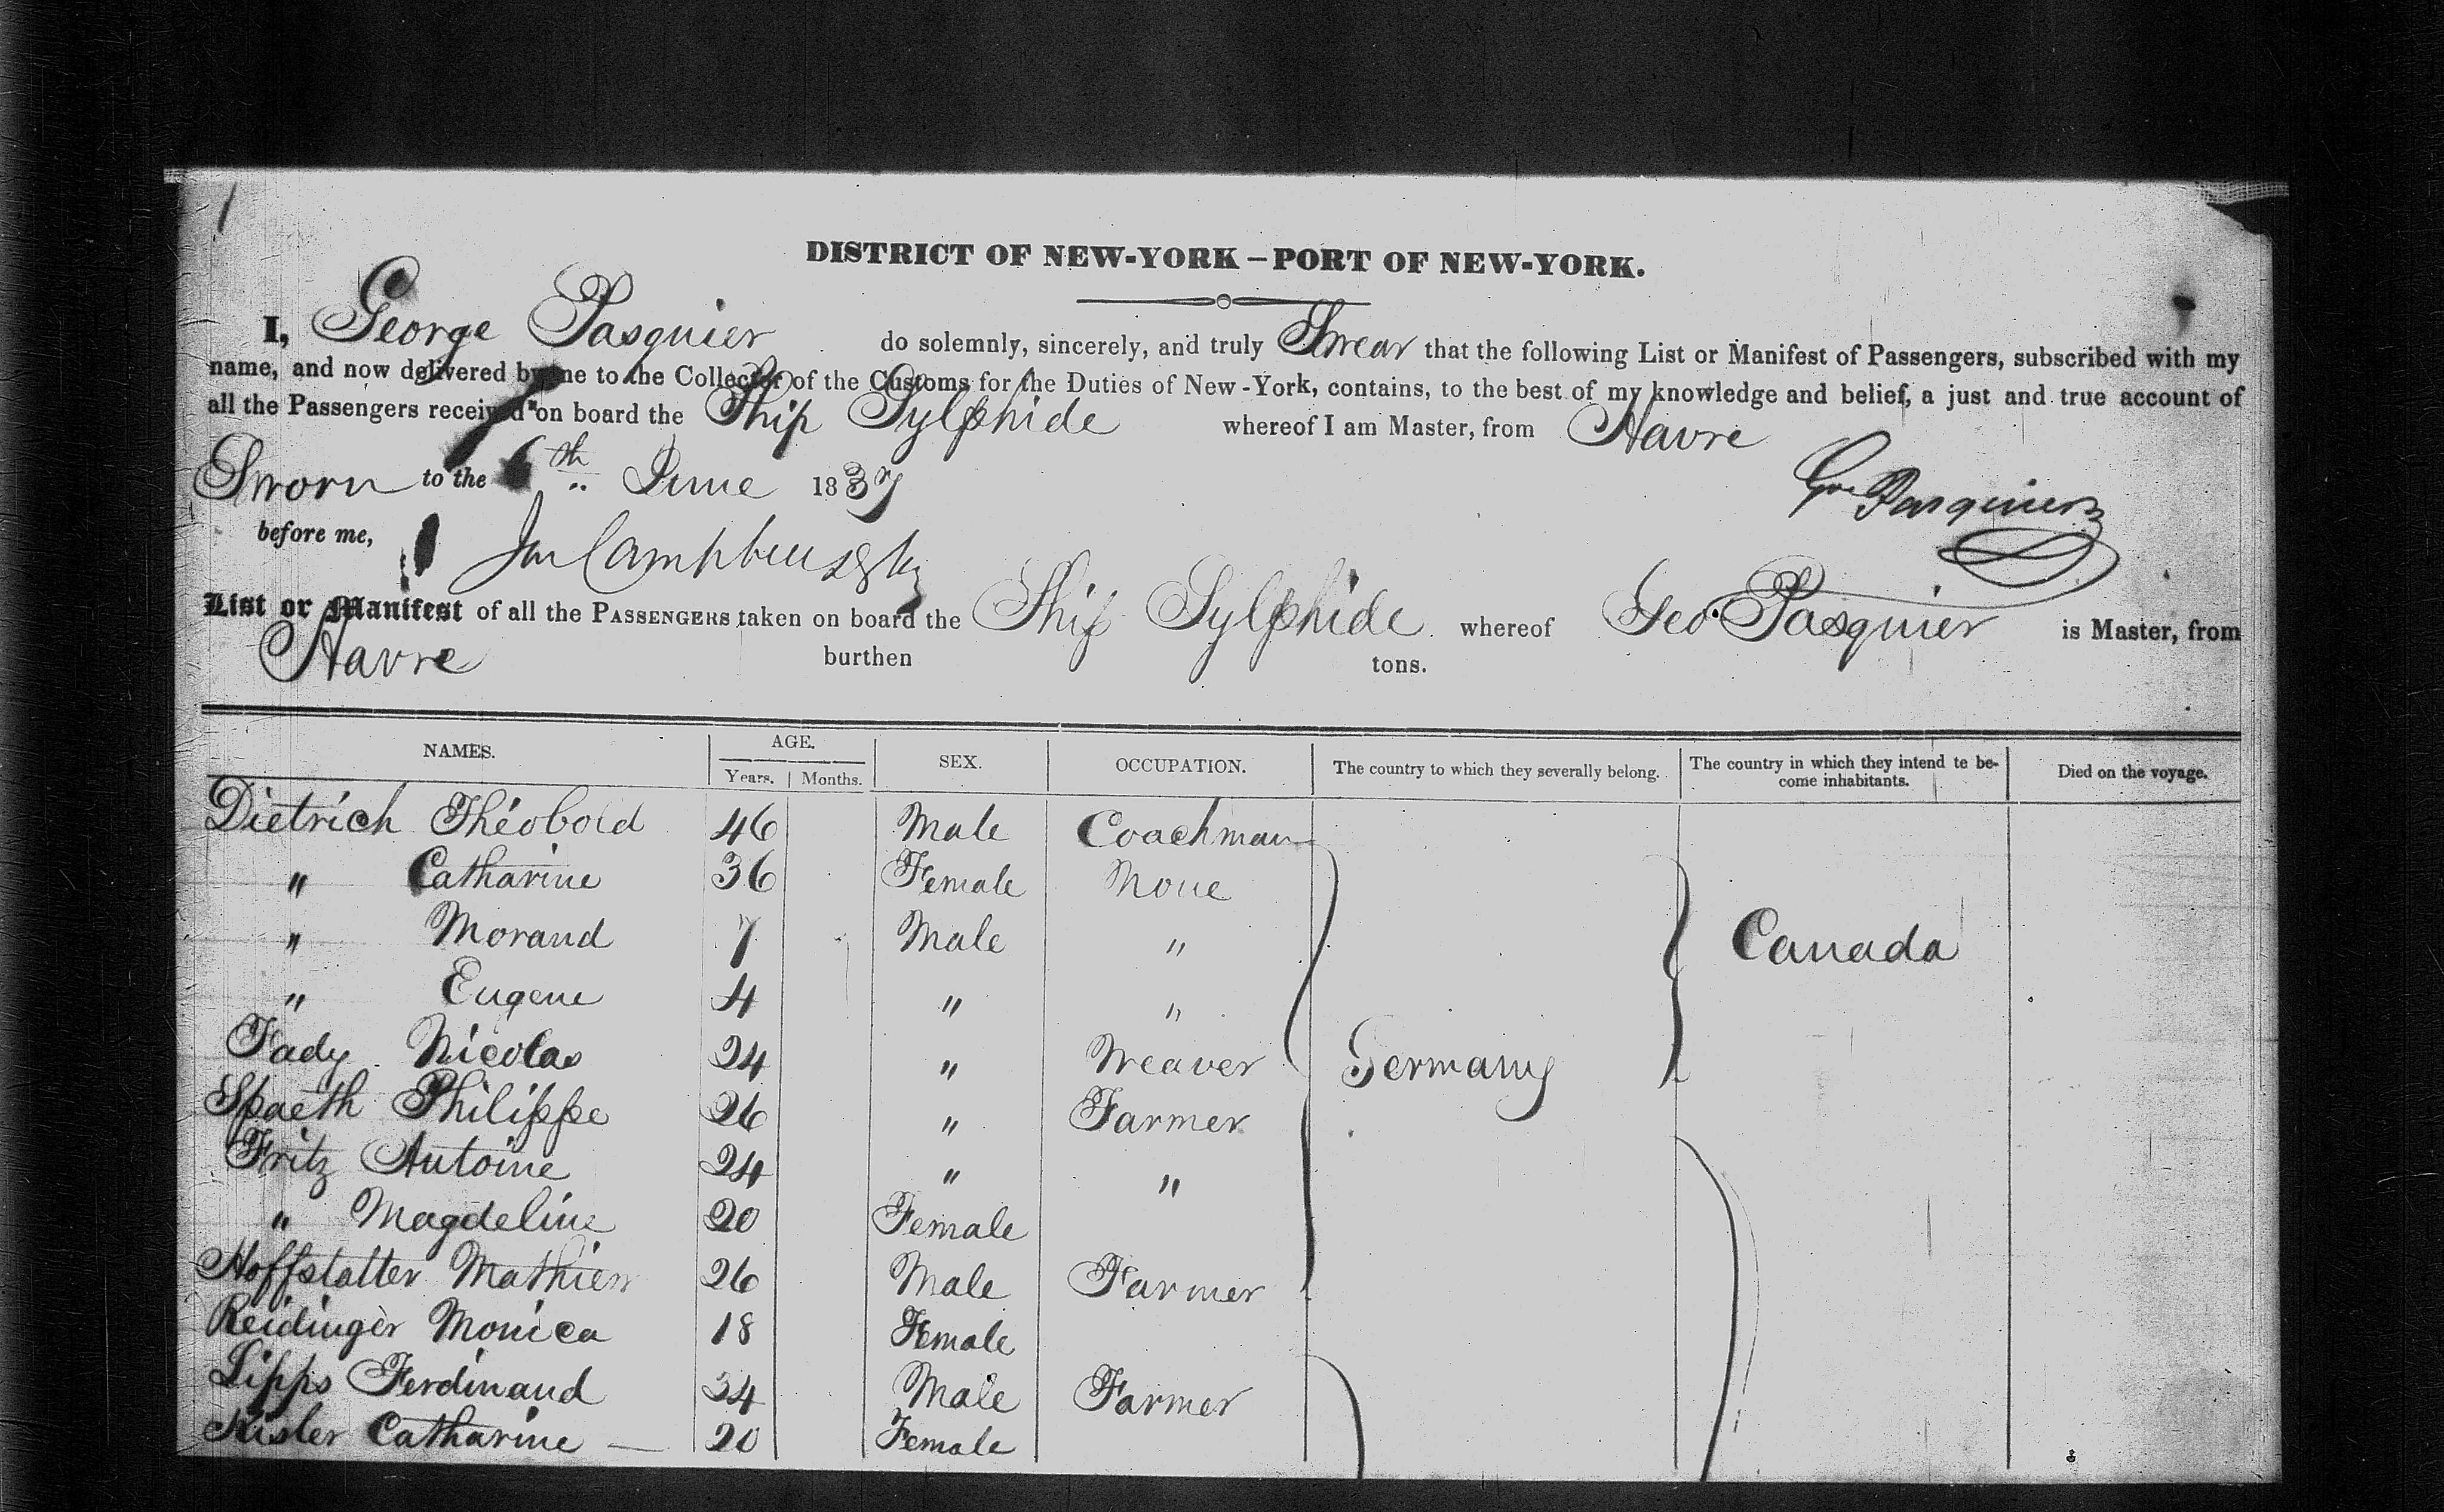 DISTRICT OF NEW-YORK – PORT OF NEW-YORK.
I, George Pasquier do solemnly, sincerely, and truly Swear that the following List or Manifest of Passengers, subscribed with my
name, and now delivered by me to the Collector of the Customs for the Duties of New-York, contains, to the best of my knowledge and belief, a just and true account of
all the Passengers received on board the Ship Sylphide whereof I am Master, from Havre
Sworn to the 6th June 1837
Geo Pasquier
before me,
List or Manifest of all the PASSENGERS taken on board the Ship Sylphide whereof Geo. Pasquier is Master, from
Havre burthen tons.
NAMES. AGE. SEX. OCCUPATION. The country to which they severally belong. The country in which they intend te be-
Years. Months. come inhabitants. Died on the voyage.
Dietrich Théobold 46 Male Coachman
" Catharine 36 Female None
" Morand 7 Male " Canada
" Eugene 4 " "
Fady Nicolas 24 " Weaver Germany
Spaeth Philippe 26 " Farmer
Fritz Antoine 24 " "
" Magdeline 20 Female
Hoffstatter Mathieu 26 Male Farmer
Reidinger Monica 18 Female
Lipps Ferdinand 34 Male Farmer
Kisler Catharine — 20 Female